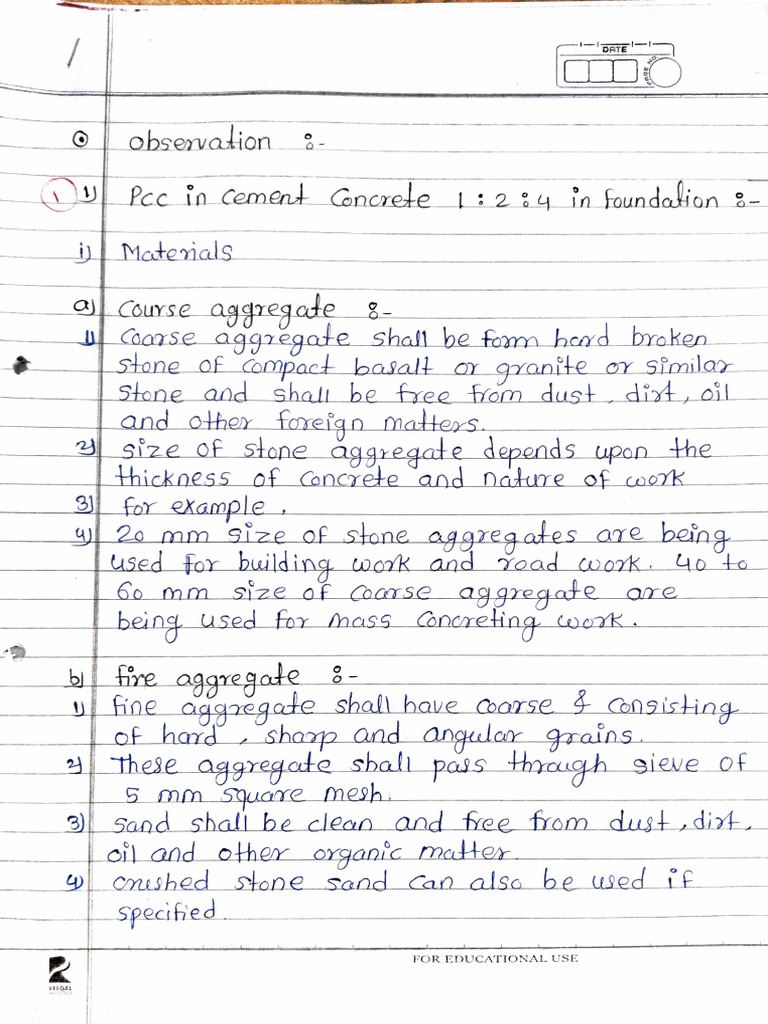 1
DATE
PAGE NO
⊙ observation :-
1 1) Pcc in cement concrete 1 : 2 : 4 in foundation :-
i) Materials
a) course aggregate :-
1) coarse aggregate shall be form hard broken
stone of compact basalt or granite or similar
stone and shall be free from dust, dirt, oil
and other foreign matters.
2) size of stone aggregate depends upon the
thickness of concrete and nature of work
3) for example,
4) 20 mm size of stone aggregates are being
used for building work and road work. 40 to
60 mm size of coarse aggregate are
being used for mass concreting work.
b) fire aggregate :-
1) fine aggregate shall have coarse & consisting
of hard, sharp and angular grains.
2) These aggregate shall pass through sieve of
5 mm square mesh.
3) sand shall be clean and free from dust, dirt,
oil and other organic matter.
4) crushed stone sand can also be used if
specified.
FOR EDUCATIONAL USE